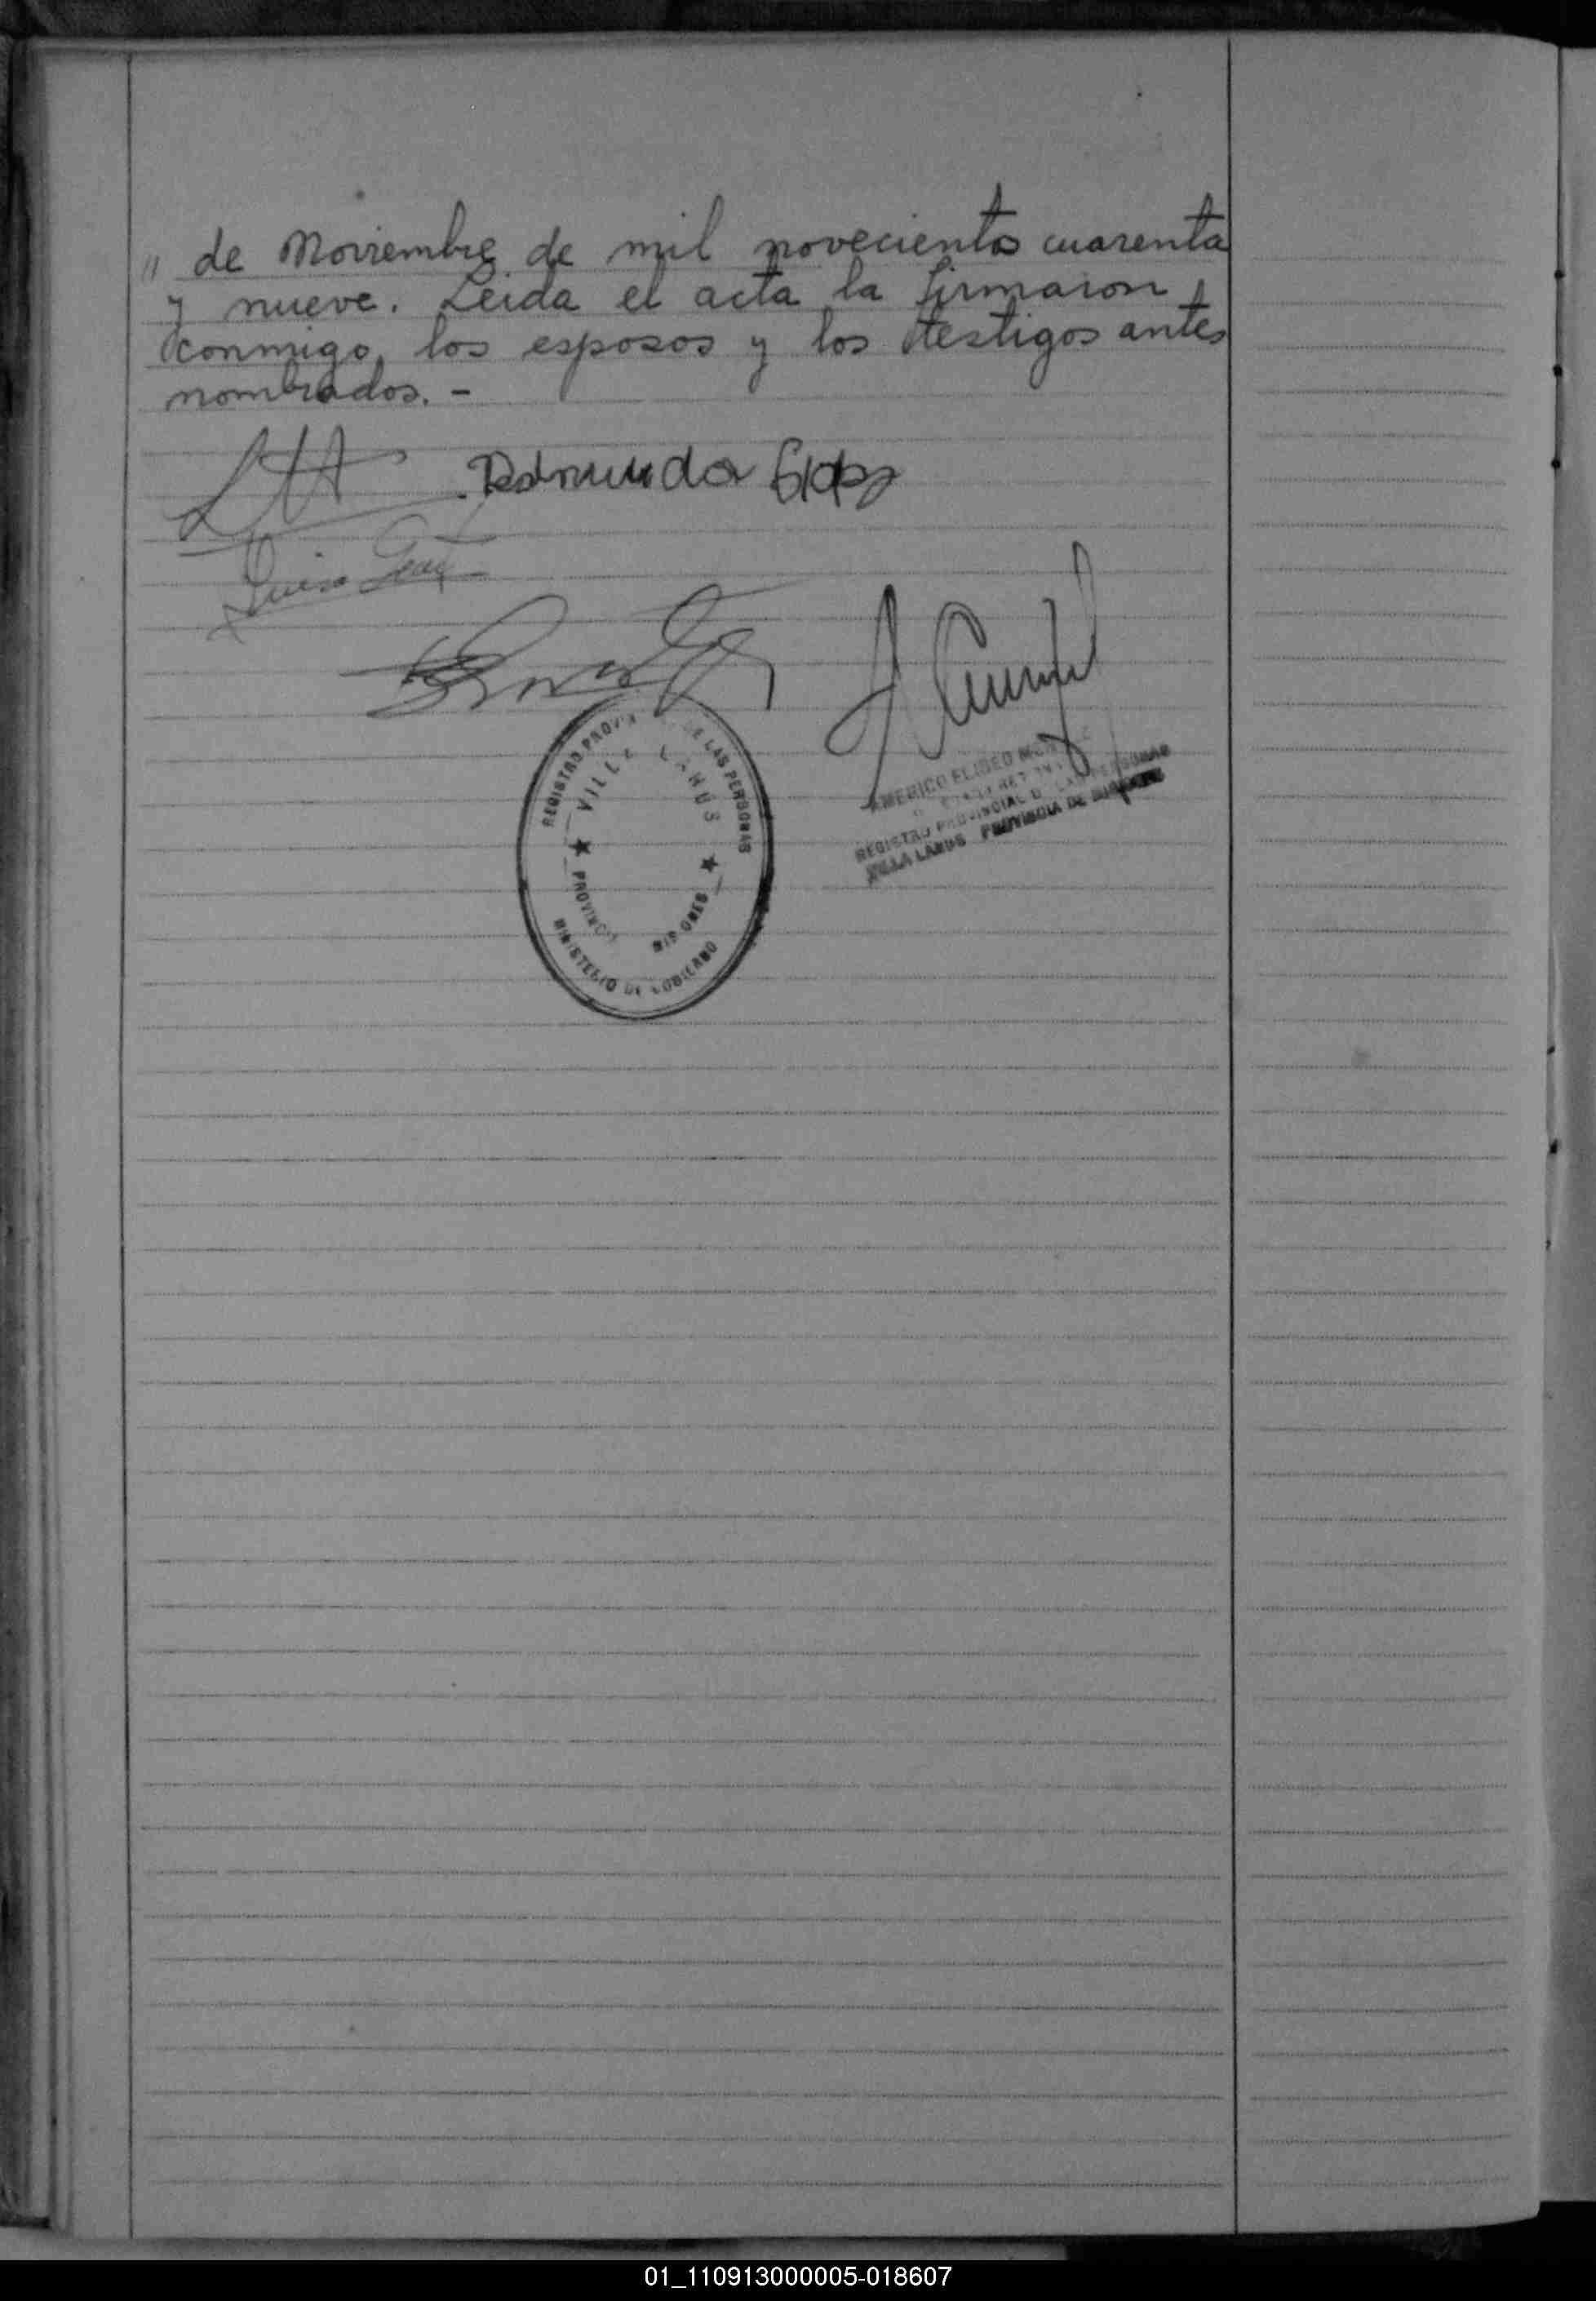 " de Noviembre de mil novecientos cuarenta
y nueve. Leida el acta la firmaron,
conmigo, los esposos y los testigos antes
nombrados. -
REGISTRO PROVIN DE LAS PERSONAS
VILLA LANUS
PROVINCIA MISIONES
MINISTERIO DE GOBIERNO
AMERICO ELISEO
REGISTRO PROVINCIAL DE LAS PERSONAS
VILLA LANUS PROVINCIA DE MISIONES
01_110913000005-018607